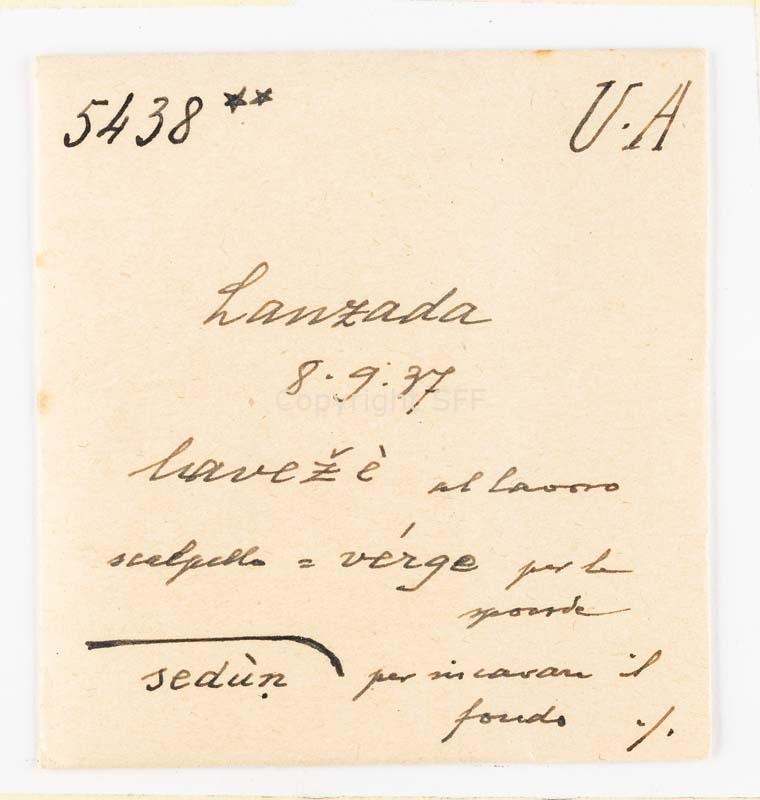 5438 ** U.A
Lanzada
8.9.37
Copyright SFF
lavežè al lavoro
scalpello = vérge per le
sponde
sedùṇ per incavare il
fondo ./.